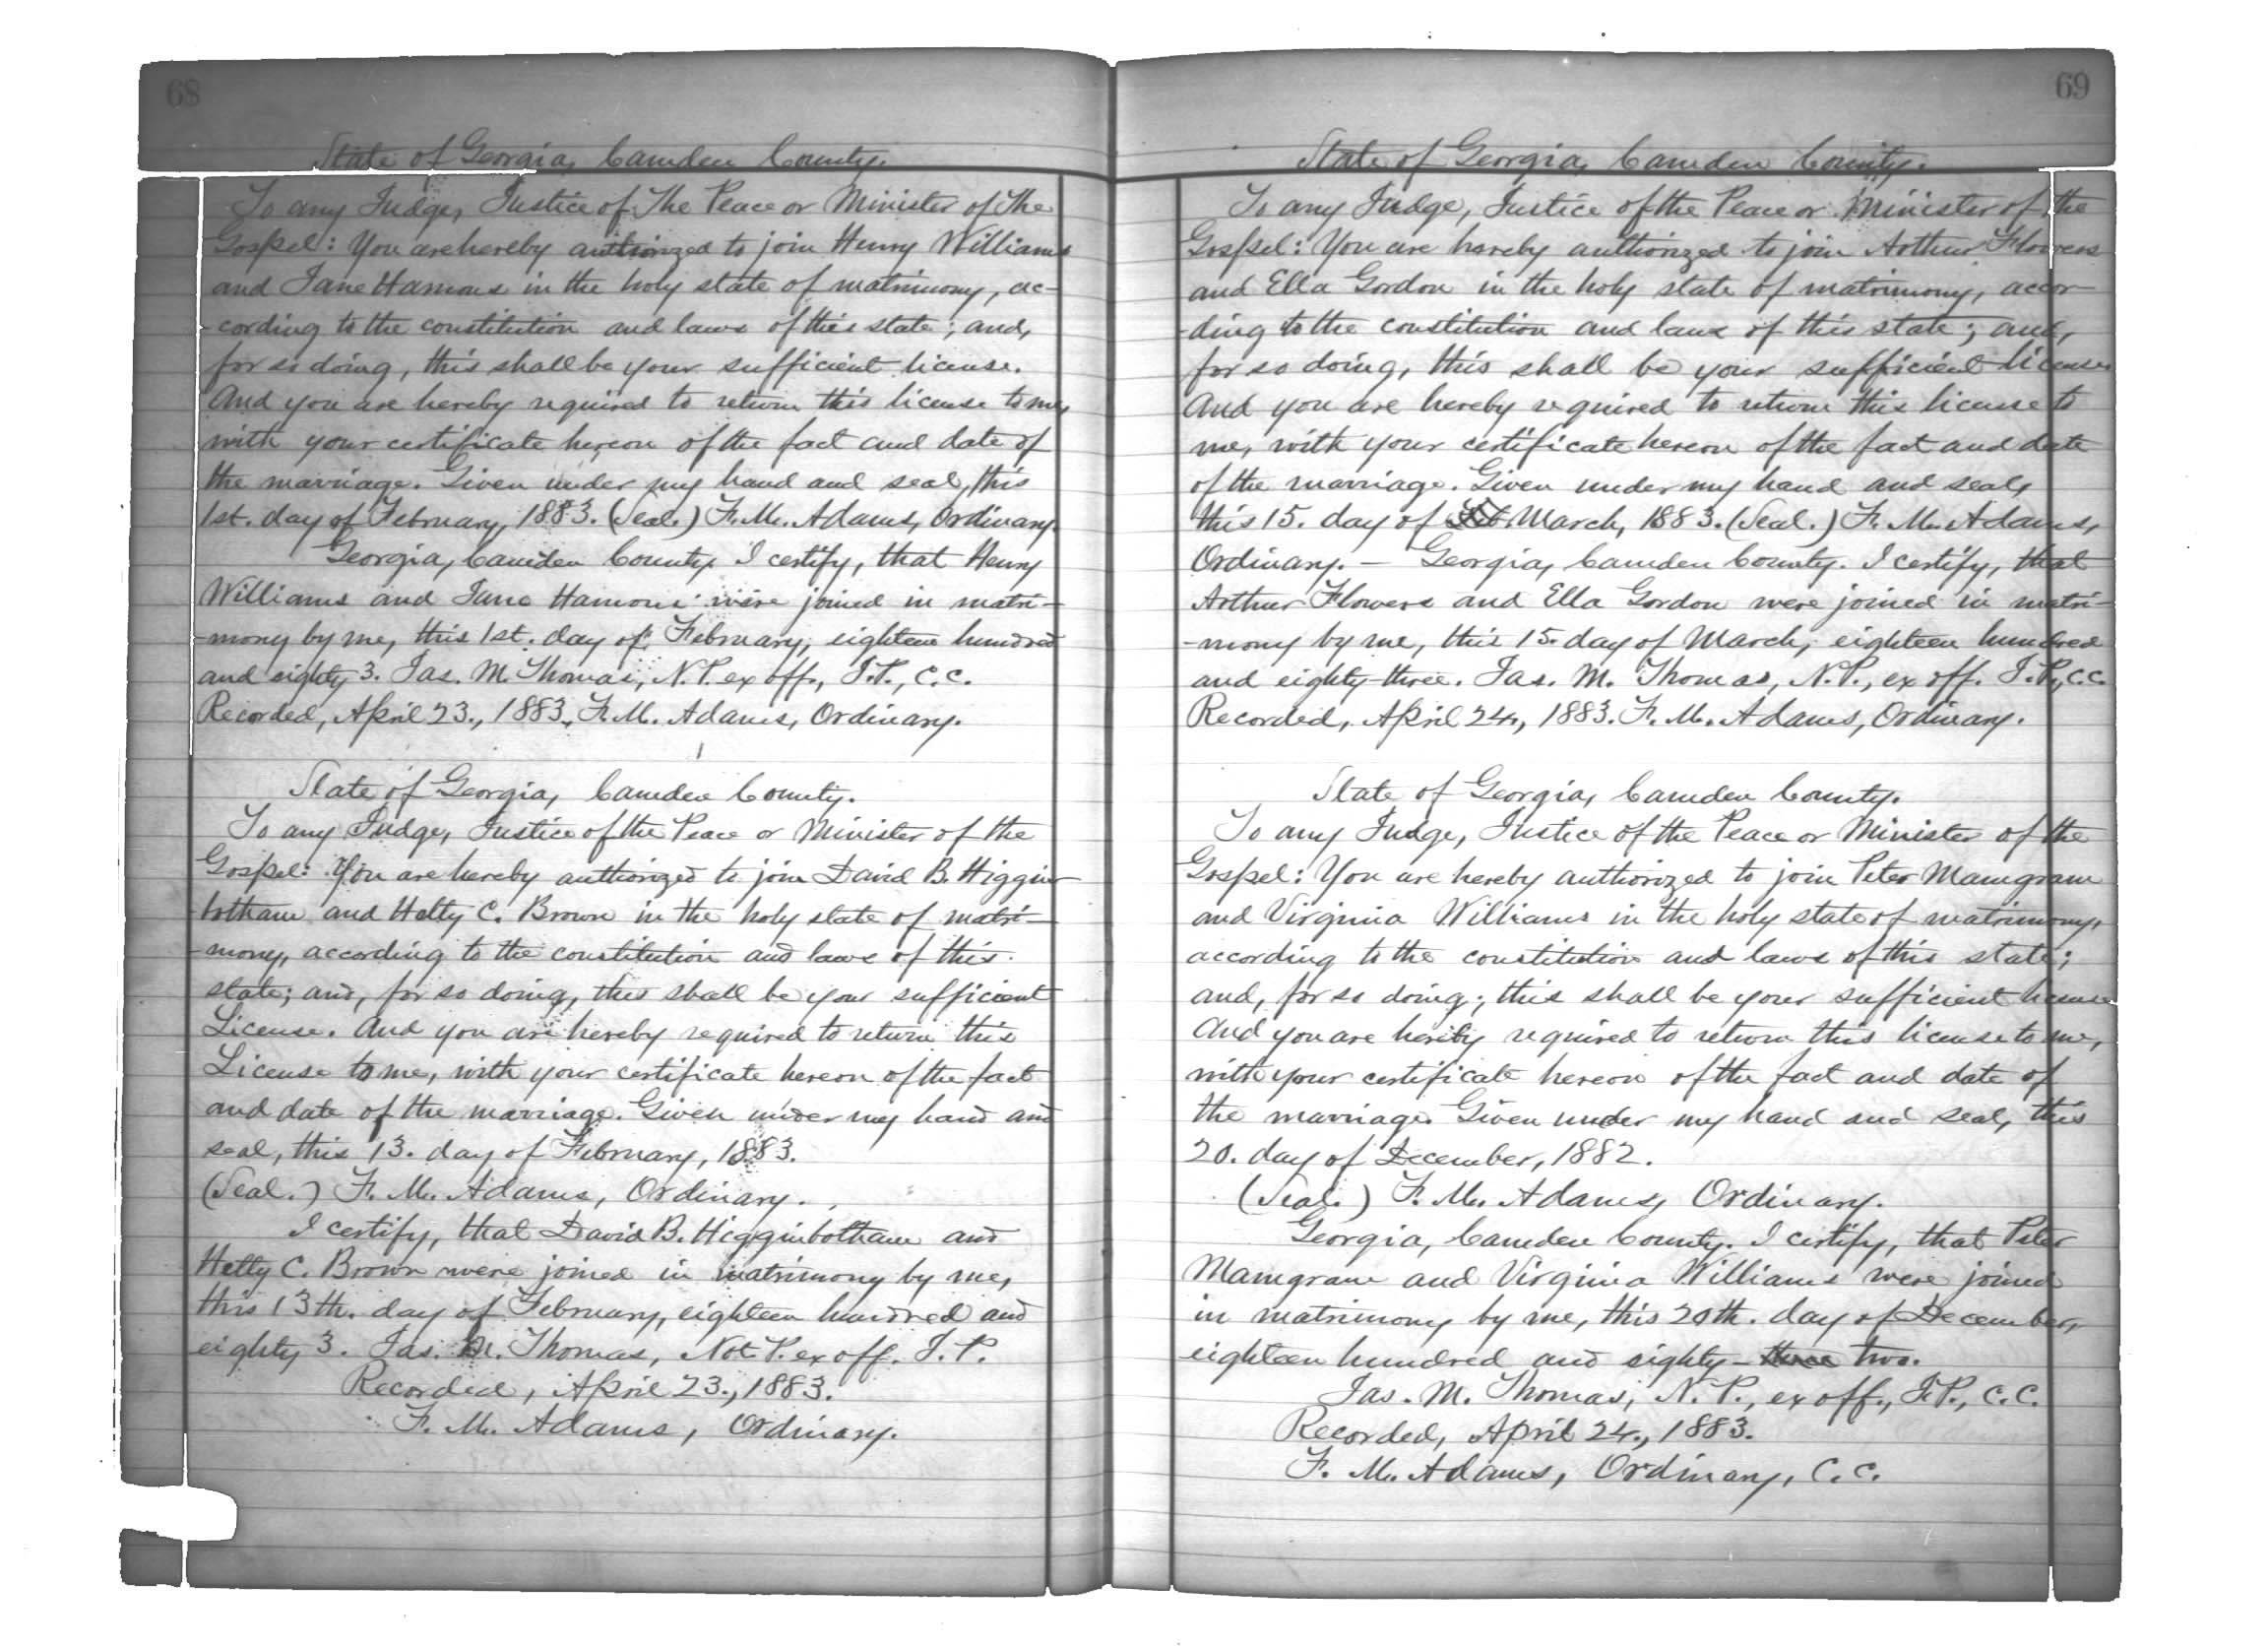 68
State of Georgia, Camden County.
To any Judge, Justice of The Peace or Minister of The
Gospel: You are hereby authorized to join Henry Williams
and Jane Hamons in the holy state of matrimony, ac-
-cording to the constitution and laws of this state; and,
for so doing, this shall be your sufficient license.
And you are hereby required to return this license to me,
with your certificate hereon of the fact and date of
the marriage. Given under my hand and seal, this
1st. day of February, 1883. (Seal.) F. M. Adams, Ordinary.
Georgia, Camden County. I certify, that Henry
Williams and Jane Hamons were joined in matri-
-mony by me, this 1st. day of February, eighteen hundred
and eighty 3. Jas. M. Thomas, N.P. ex off., J.P., C.C.
Recorded, April 23., 1883. F. M. Adams, Ordinary.
State of Georgia, Camden County.
To any Judge, Justice of the Peace or Minister of the
Gospel: You are hereby authorized to join David B. Higgin-
botham and Hetty C. Brown in the holy state of matri-
-mony, according to the constitution and laws of this
state; and, for so doing, this shall be your sufficient
License. And you are hereby required to return this
License to me, with your certificate hereon of the fact
and date of the marriage. Given under my hand and
seal, this 13. day of February, 1883.
(Seal.) F. M. Adams, Ordinary.
I certify, that David B. Higginbotham and
Hetty C. Brown were joined in matrimony by me,
this 13th. day of February, eighteen hundred and
eighty 3. Jas. M. Thomas, Not. P. ex off. J. P.
Recorded, April 23., 1883.
F. M. Adams, Ordinary.
69
State of Georgia, Camden County.
To any Judge, Justice of the Peace or Minister of the
Gospel: You are hereby authorized to join Arthur Flowers
and Ella Gordon in the holy state of matrimony, accor-
-ding to the constitution and laws of this state; and,
for so doing, this shall be your sufficient license.
And you are hereby required to return this license to
me, with your certificate hereon of the fact and date
of the marriage. Given under my hand and seal,
this 15. day of Feb. March, 1883. (Seal.) F. M. Adams,
Ordinary. — Georgia, Camden County. I certify, that
Arthur Flowers and Ella Gordon were joined in matri-
-mony by me, this 15. day of March, eighteen hundred
and eighty-three. Jas. M. Thomas, N.P., ex off. J.P., C.C.
Recorded, April 24., 1883. F. M. Adams, Ordinary.
State of Georgia, Camden County.
To any Judge, Justice of the Peace or Minister of the
Gospel: You are hereby authorized to join Peter Manigram
and Virginia Williams in the holy state of matrimony,
according to the constitution and laws of this state;
and, for so doing, this shall be your sufficient license
And you are hereby required to return this license to me,
with your certificate hereon of the fact and date of
the marriage. Given under my hand and seal, this
20. day of December, 1882.
(Seal.) F. M. Adams, Ordinary.
Georgia, Camden County. I certify, that Peter
Manigram and Virginia Williams were joined
in matrimony by me, this 20th. day of December,
eighteen hundred and eighty-three two.
Jas. M. Thomas, N. P., ex off., J.P., C.C.
Recorded, April 24., 1883.
F. M. Adams, Ordinary, C.C.